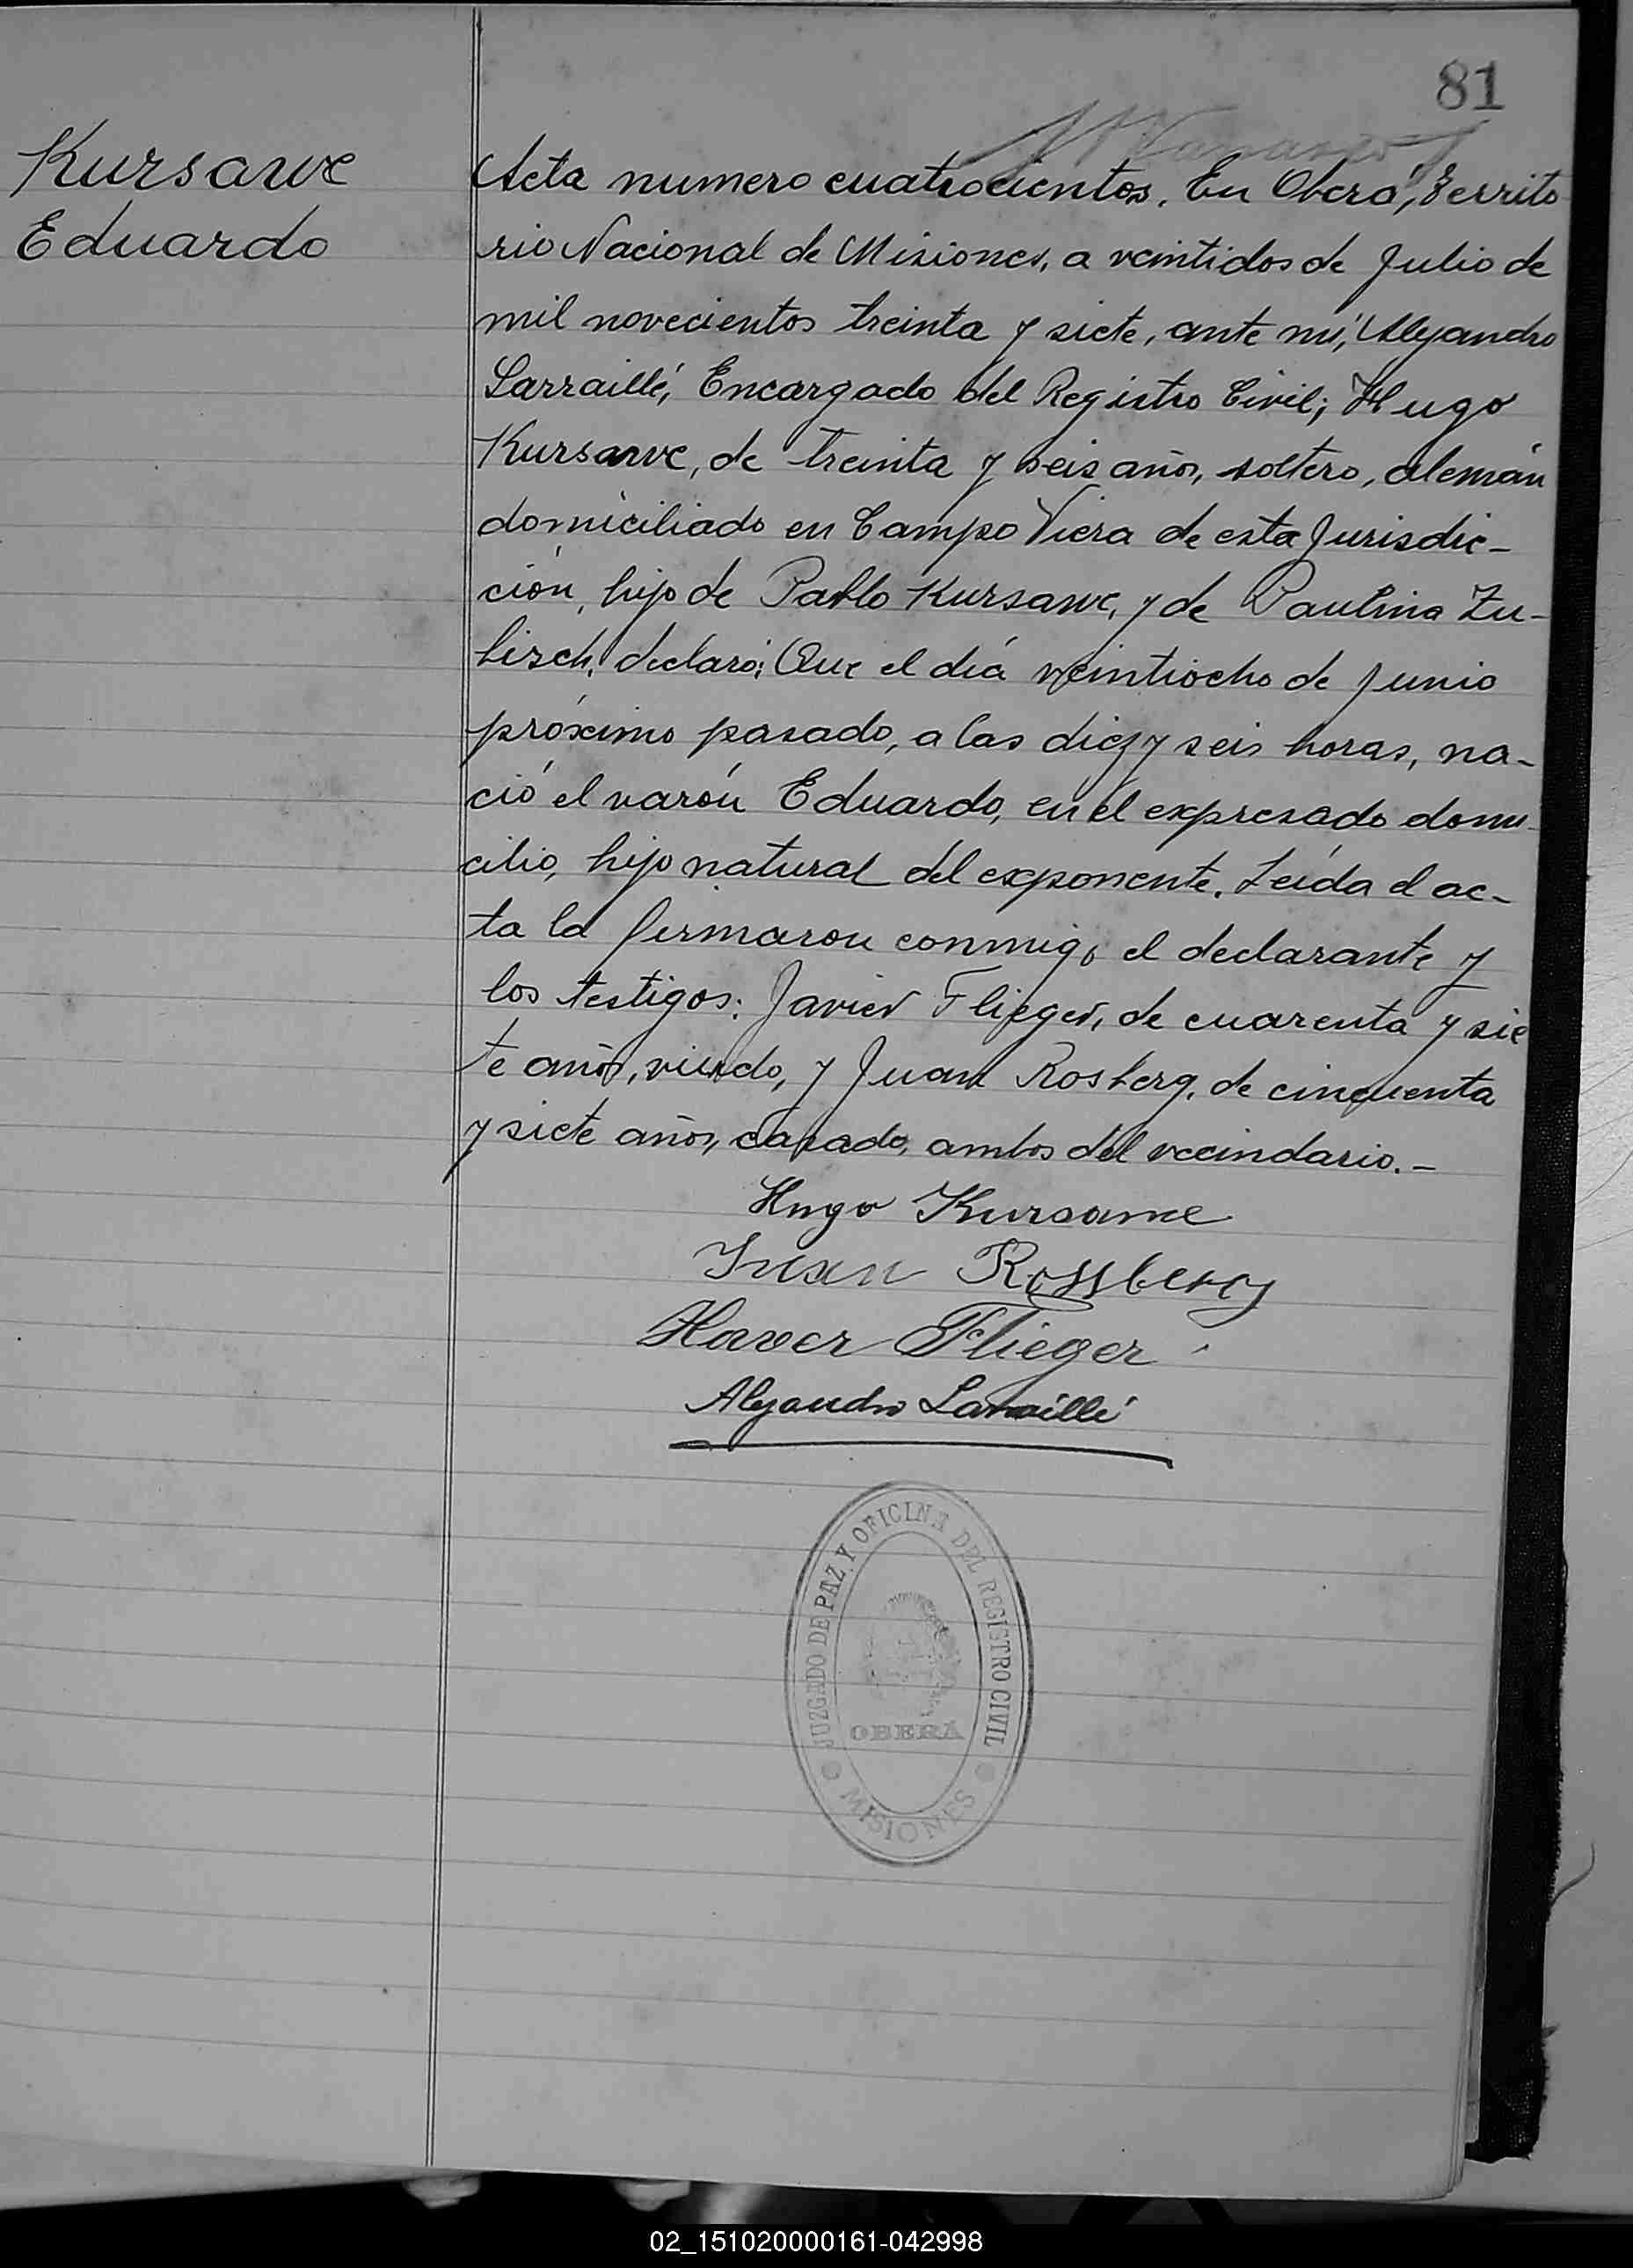 81
Kursawe
Eduardo
Acta numero cuatrocientos. En Oberá, Territo
rio Nacional de Misiones, a veintidos de Julio de
mil novecientos treinta y siete, ante mí, Alejandro
Larraillé, Encargado del Registro Civil; Hugo
Kursawe, de treinta y seis años, soltero, alemán
domiciliado en Campo Viera de esta Jurisdic-
ción, hijo de Pablo Kursawe, y de Paulina Zu-
bisch, declaró: Que el día veintiocho de Junio
próximo pasado, a las diez y seis horas, na-
ció el varón Eduardo, en el expresado domi-
cilio, hijo natural del exponente. Leída el ac-
ta la firmaron conmigo el declarante y
los testigos: Javier Flieger, de cuarenta y sie
te años, viudo, y Juan Rosberg, de cincuenta
y siete años, casado, ambos del vecindario.-
Hugo Kursawe
Juan Rossberg
Xaver Flieger
Alejandro Larraillé
JUZGADO DE PAZ Y OFICINA DEL REGISTRO CIVIL
OBERÁ
MISIONES
02_151020000161-042998